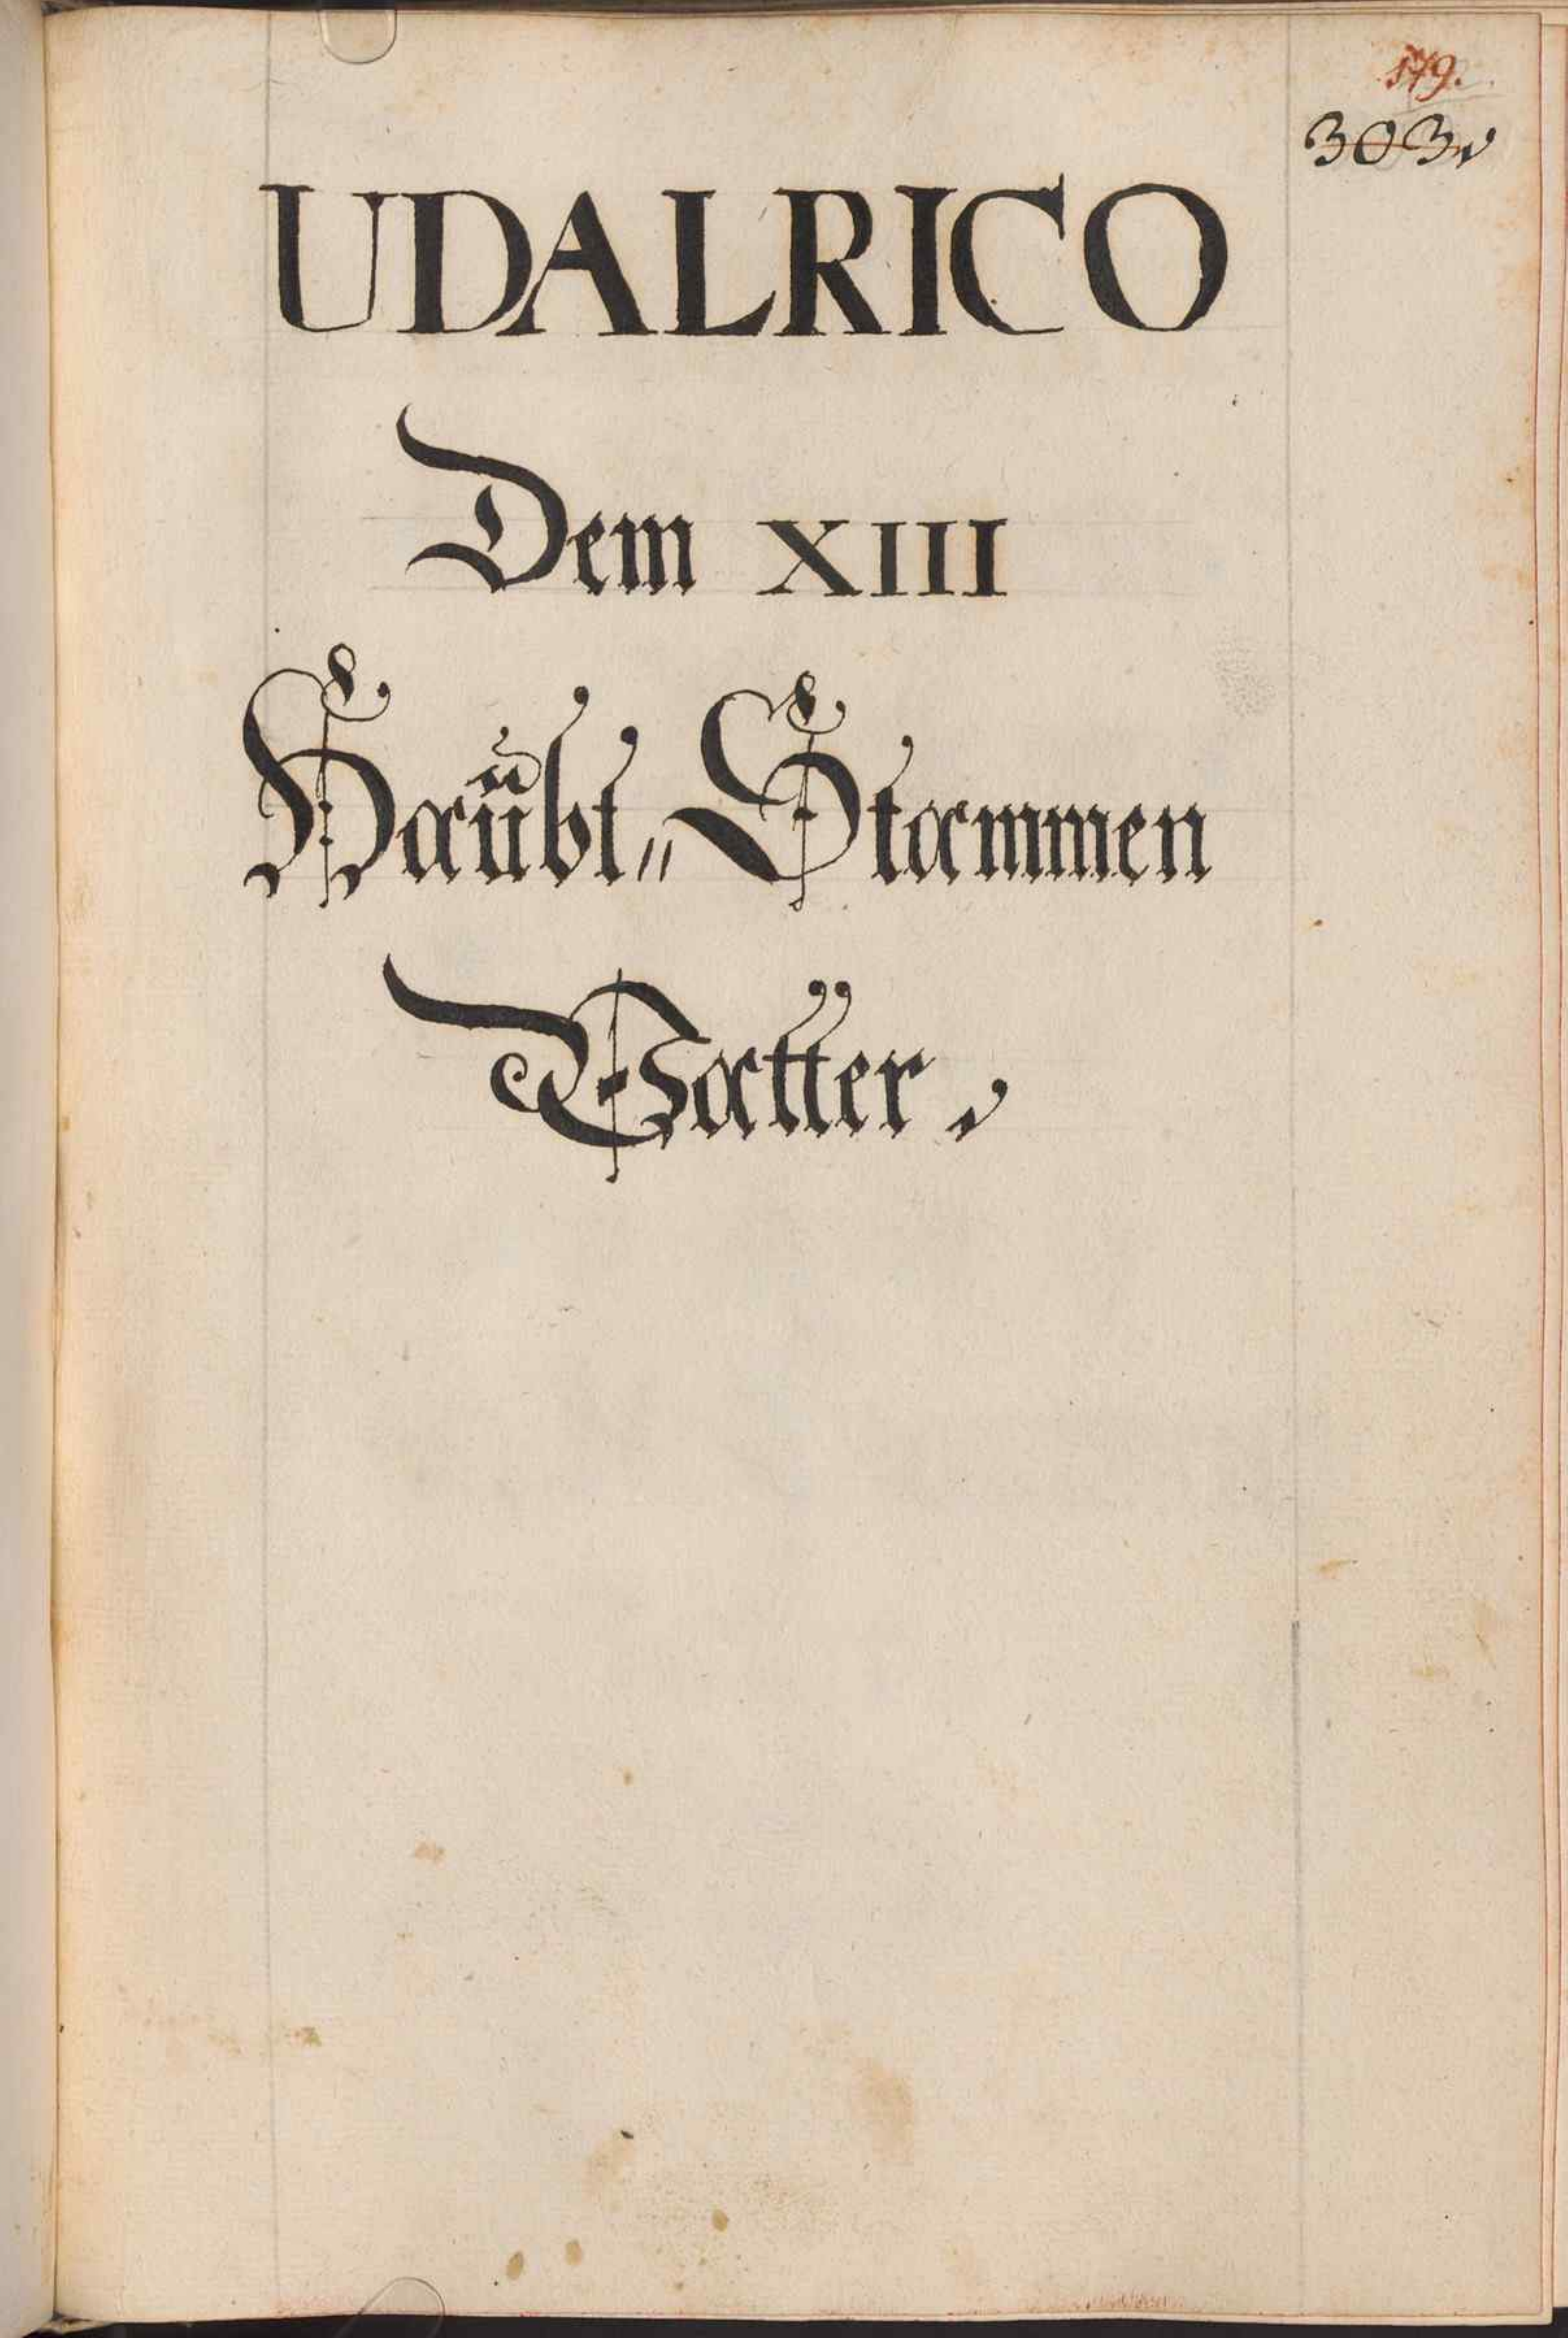 179.
303.
UDALRICO
Dem XIII
Haubt„Stammen
Vatter.